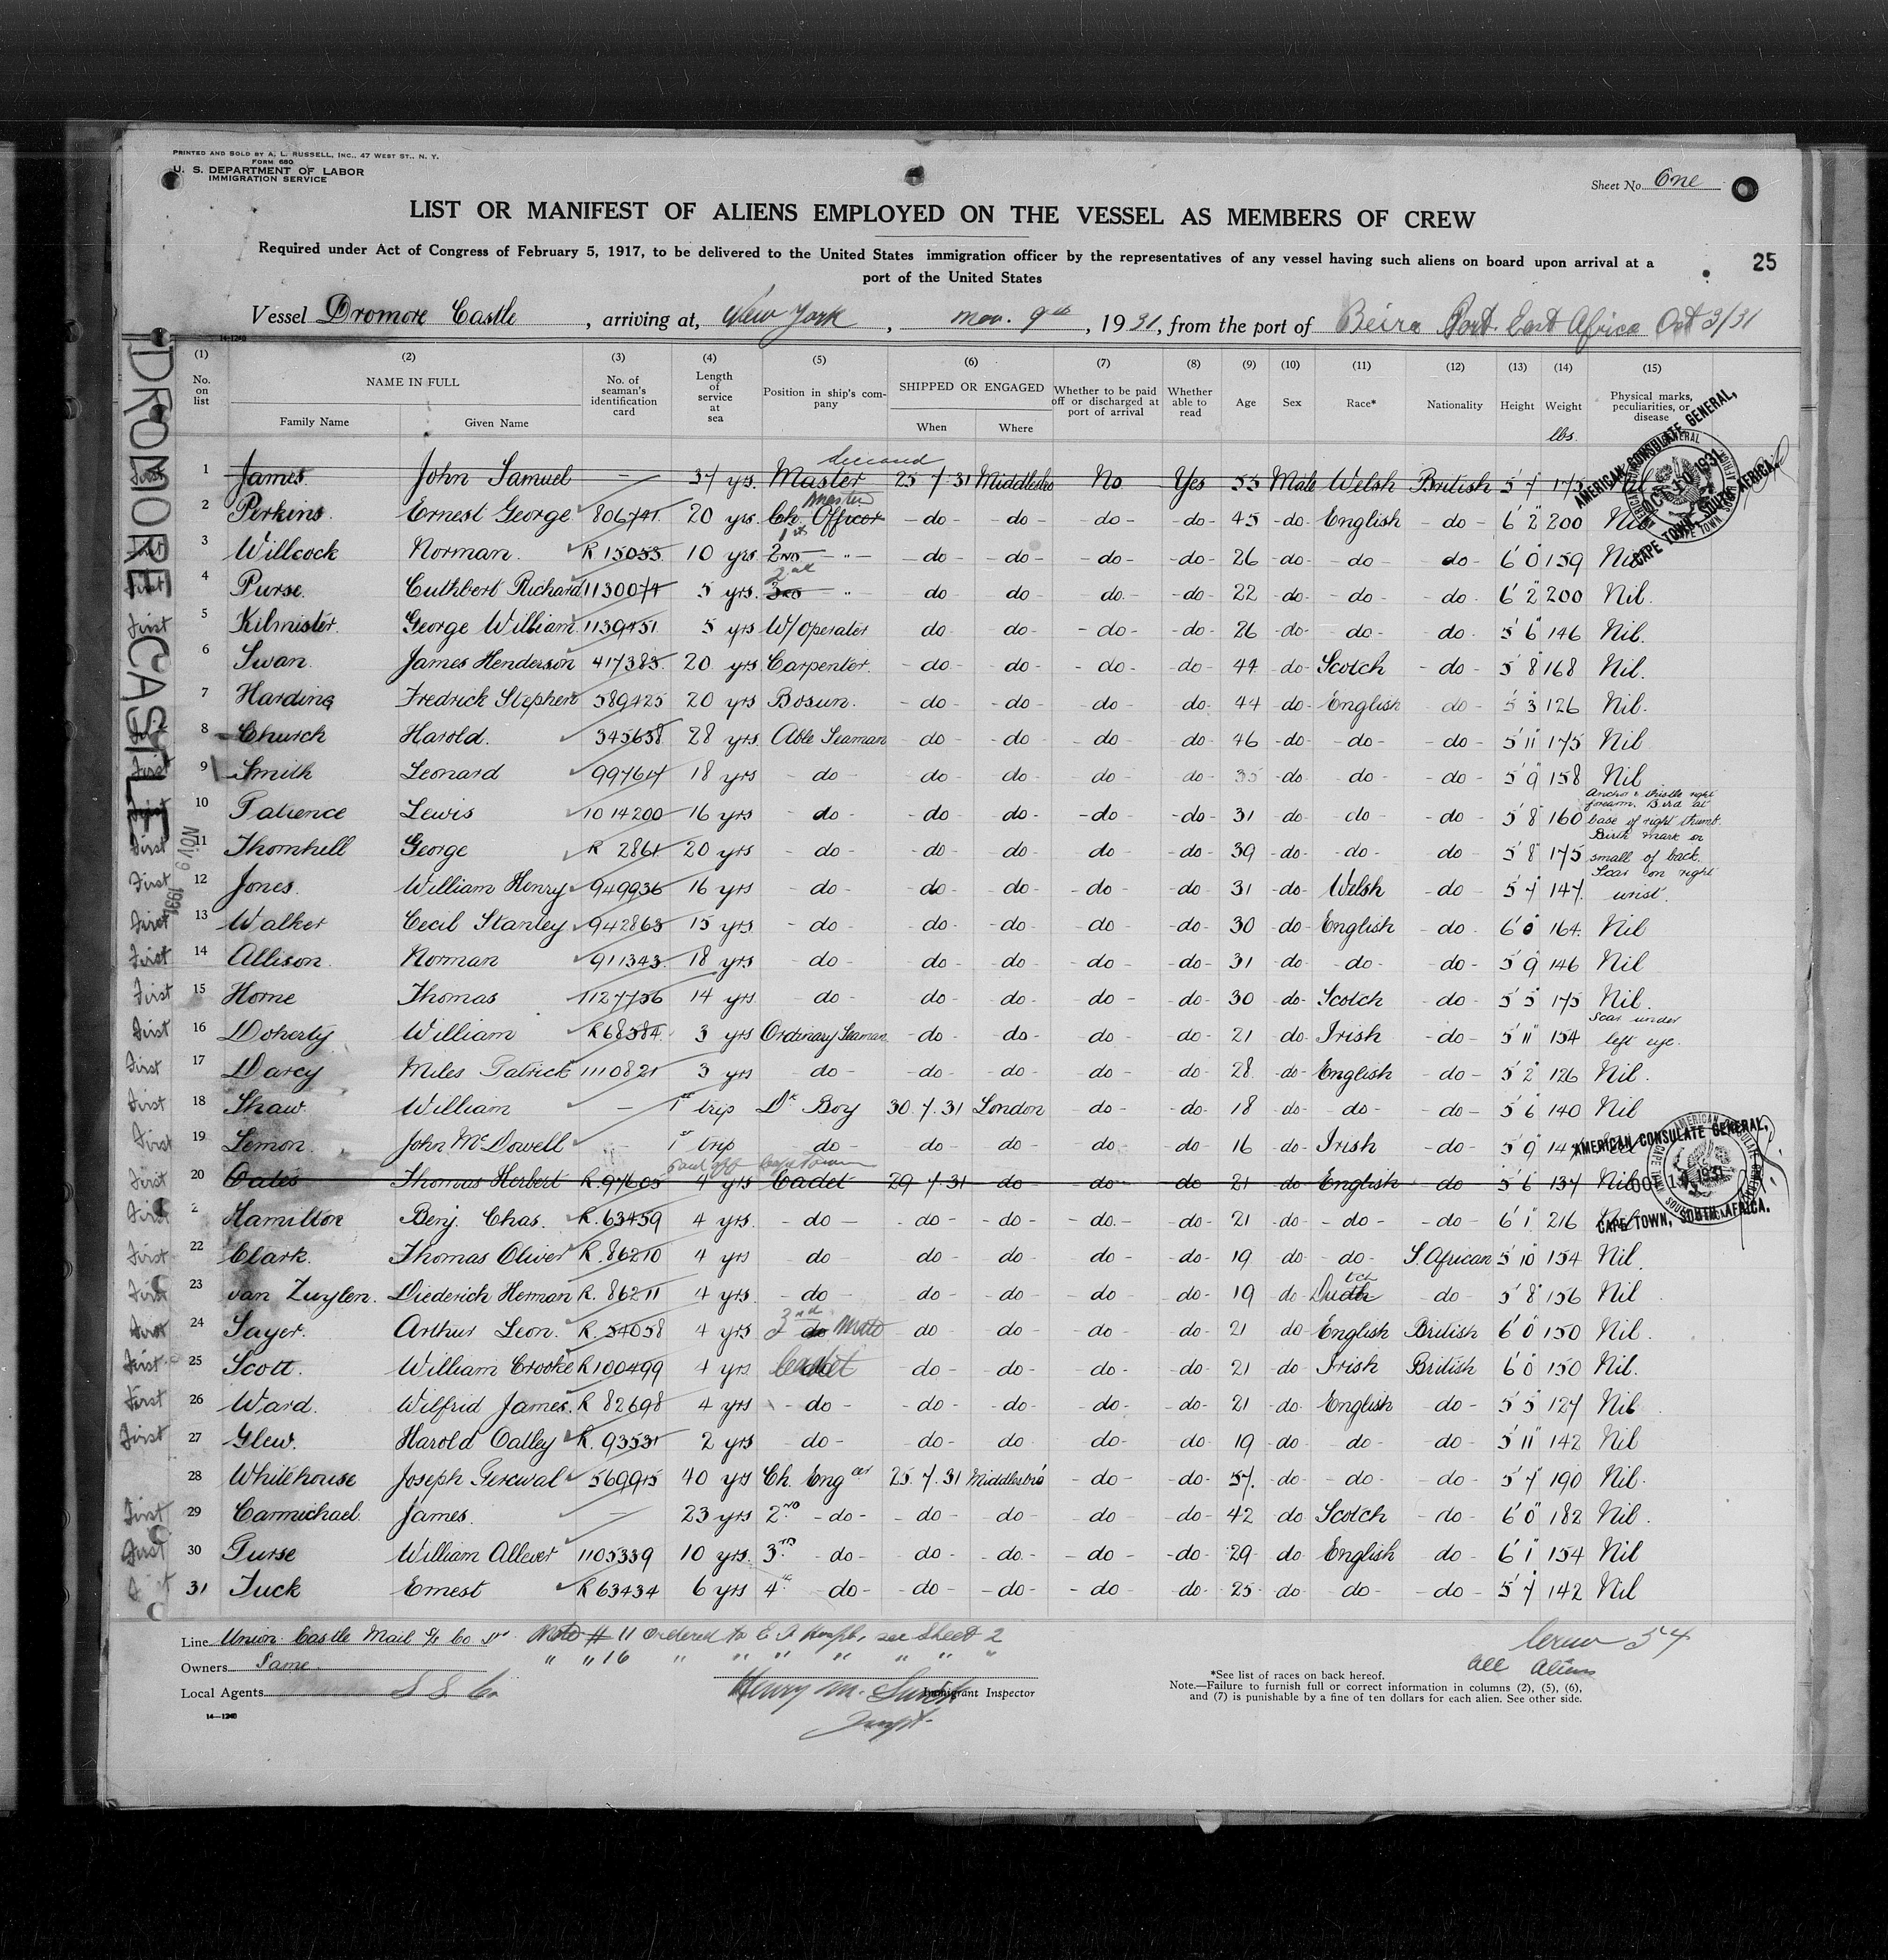 PRINTED AND SOLD BY A. L. RUSSELL, INC., 47 WEST ST., N. Y.
FORM 680
U. S. DEPARTMENT OF LABOR
IMMIGRATION SERVICE
Sheet No. One
LIST OR MANIFEST OF ALIENS EMPLOYED ON THE VESSEL AS MEMBERS OF CREW
Required under Act of Congress of February 5, 1917, to be delivered to the United States immigration officer by the representatives of any vessel having such aliens on board upon arrival at a
port of the United States
25
Vessel Dromore Castle, arriving at, New York, Nov. 9th, 1931, from the port of Beira Port. East Africa Oct 3/31
14-1240
(1) (2) (3) (4) (5) (6) (7) (8) (9) (10) (11) (12) (13) (14) (15)
No. on list NAME IN FULL Family Name Given Name No. of seaman's identification card Length of service at sea Position in ship's company SHIPPED OR ENGAGED When Where Whether to be paid off or discharged at port of arrival Whether able to read Age Sex Race* Nationality Height Weight lbs. Physical marks, peculiarities, or disease
DROMORE CASTLE
NOV 9 1931
AMERICAN CONSULATE GENERAL,
CAPE TOWN, SOUTH AFRICA.
1 James. John Samuel — 37 yrs. Master 25 7 31 Middlesbro No Yes 55 Male Welsh British 5' 7 175 Nil
2 Perkins. Ernest George 806741 20 yrs. Ch. Officer Master - do - - do - - do - - do - 45 - do - English - do - 6' 2" 200 Nil
3 Willcock Norman. R 15055 10 yrs 2ND 1st - " - - do - - do - - do - - do - 26 - do - - do - do - 6' 0 159 Nil
4 Purse. Cuthbert Richard 1130074 5 yrs. 3RD 2nd - " do - - do - do. - - do - 22 - do - - do - - do. 6' 2" 200 Nil.
First 5 Kilmister. George William 1139451 5 yrs W/operator do - do - - do - - do - 26 - do - do - do. 5' 6 146 Nil.
6 Swan. James Henderson 417385. 20 yrs Carpenter. - do - - do - - do - - do - 44 - do Scotch - do - 5' 8 168 Nil.
7 Harding Fredrick Stephen 589425 20 yrs Bosun. - do - - do - - do - do - 44 - do - English do - 5' 3 126 Nil.
8 Church Harold. 345658 28 yrs. Able Seaman - do - - do - - do - - do - 46 - do - - do - - do - 5' 11" 175 Nil
First 9 Smith Leonard 997617 18 yrs - do do - do - - do - - do - 35 - do - do - - do - 5' 9" 158 Nil
First 10 Patience Lewis 1014200 16 yrs - do - - do - - do - - do - - do - 31 - do - do - - do - 5' 8 160 Anchor & thistle right forearm. Bird at base of right thumb.
First 11 Thornhill George R 2861 20 yrs - do - - do - - do - - do - - do - 39 - do - - do - do - 5' 8" 175 Birth mark on small of back.
First 12 Jones. William Henry 949936 16 yrs - do - - do - do - - do - - do 31 - do - Welsh - do - 5' 7 147. Scar on right wrist.
First 13 Walker Cecil Stanley 942863 15 yrs - do - - do - - do - - do - - do - 30 - do - English - do. 6' 0 164. Nil
First 14 Allison. Norman 911343 18 yrs - do - do - - do - - do - - do - 31 - do - - do - - do - 5' 9 146 Nil
First 15 Horne Thomas 1127756 14 yrs do - do - - do - do - - do - 30 - do - Scotch - do - 5' 5 175 Nil.
First 16 Doherty William R 68384 3 yrs Ordinary Seaman - do - - do - do - - do - 21 - do - Irish - do - 5' 11" 154 Scar under left eye.
First 17 Darcy Miles Patrick 1110821 3 yrs - do - - do - - do - - do - - do - 28 - do - English - do - 5' 2 126 Nil.
First 18 Shaw. William — 1st trip Dk Boy 30. 7. 31 London - do - - do - 18 - do - - do - - do - 5' 6 140 Nil
First 19 Lemon. John McDowell 1st trip do do - do - - do - - do - 16 - do - Irish - do - 5' 9
Paid off Cape Town
First 20 Oates Thomas Herbert R. 97605 4 yrs Cadet 29 7 31 do - do - do 21 do - English - do - 5' 6 137 Nil
First Hamilton Benj. Chas. R. 63459 4 yrs. - do - - do - - do - - do. - - do - 21 - do - - do - - do - 6' 1" 216
AMERICAN CONSULATE GENERAL,
CAPE TOWN, SOUTH AFRICA.
First 22 Clark. Thomas Oliver R. 86210 4 yrs do - do - - do - do - - do - 19 do - do - S. African 5' 10 154 Nil.
First 23 van Zuylen. Diederich Herman R. 86211 4 yrs. - do - - do - - do - - do - - do - 19 - do Dutch do - 5' 8" 156 Nil
First 24 Sayer. Arthur Leon. R. 54058 4 yrs 3rd do Mate do - - do - do - - do - 21 do English British 6' 0 150 Nil.
First 25 Scott. William Crooke R 100499 4 yrs. Cadet do - - do - - do - - do - 21 - do - Irish British 6' 0 150 Nil.
First 26 Ward. Wilfrid James. R 82698 4 yrs - do - - do - - do - - do - - do - 21 - do English - do - 5' 5 127 Nil
First 27 Glew. Harold Oatley R. 93531 2 yrs - do - - do - do - do - - do 19 - do - do - - do - 5' 11" 142 Nil
28 Whitehouse Joseph Percival 569915 40 yrs Ch. Engeer 25. 7. 31 Middlesbro - do - - do - 57. - do - - do - - do - 5' 7" 190 Nil.
First 29 Carmichael. James. — 23 yrs 2ND - do - - do - - do - - do - - do - 42 do Scotch - do - 6' 0" 182 Nil.
First 30 Purse William 1105339 10 yrs. 3RD - do - - do - - do. - - do - - do - 29 - do English do - 6' 1 154 Nil
31 Tuck Ernest R 63434 6 yrs 4th do - - do - - do - - do - - do - 25 - do - do - - do - 5' 7 142 Nil
Line Union Castle Mail SS Co Note # 11 ordered to E I Hospt., see sheet 2
" " 16 " " " " " " "
Crew 54
All Aliens
Owners Same
Local Agents S S Co
Henry M.
Immigrant Inspector
*See list of races on back hereof.
Note.—Failure to furnish full or correct information in columns (2), (5), (6),
and (7) is punishable by a fine of ten dollars for each alien. See other side.
14—1240